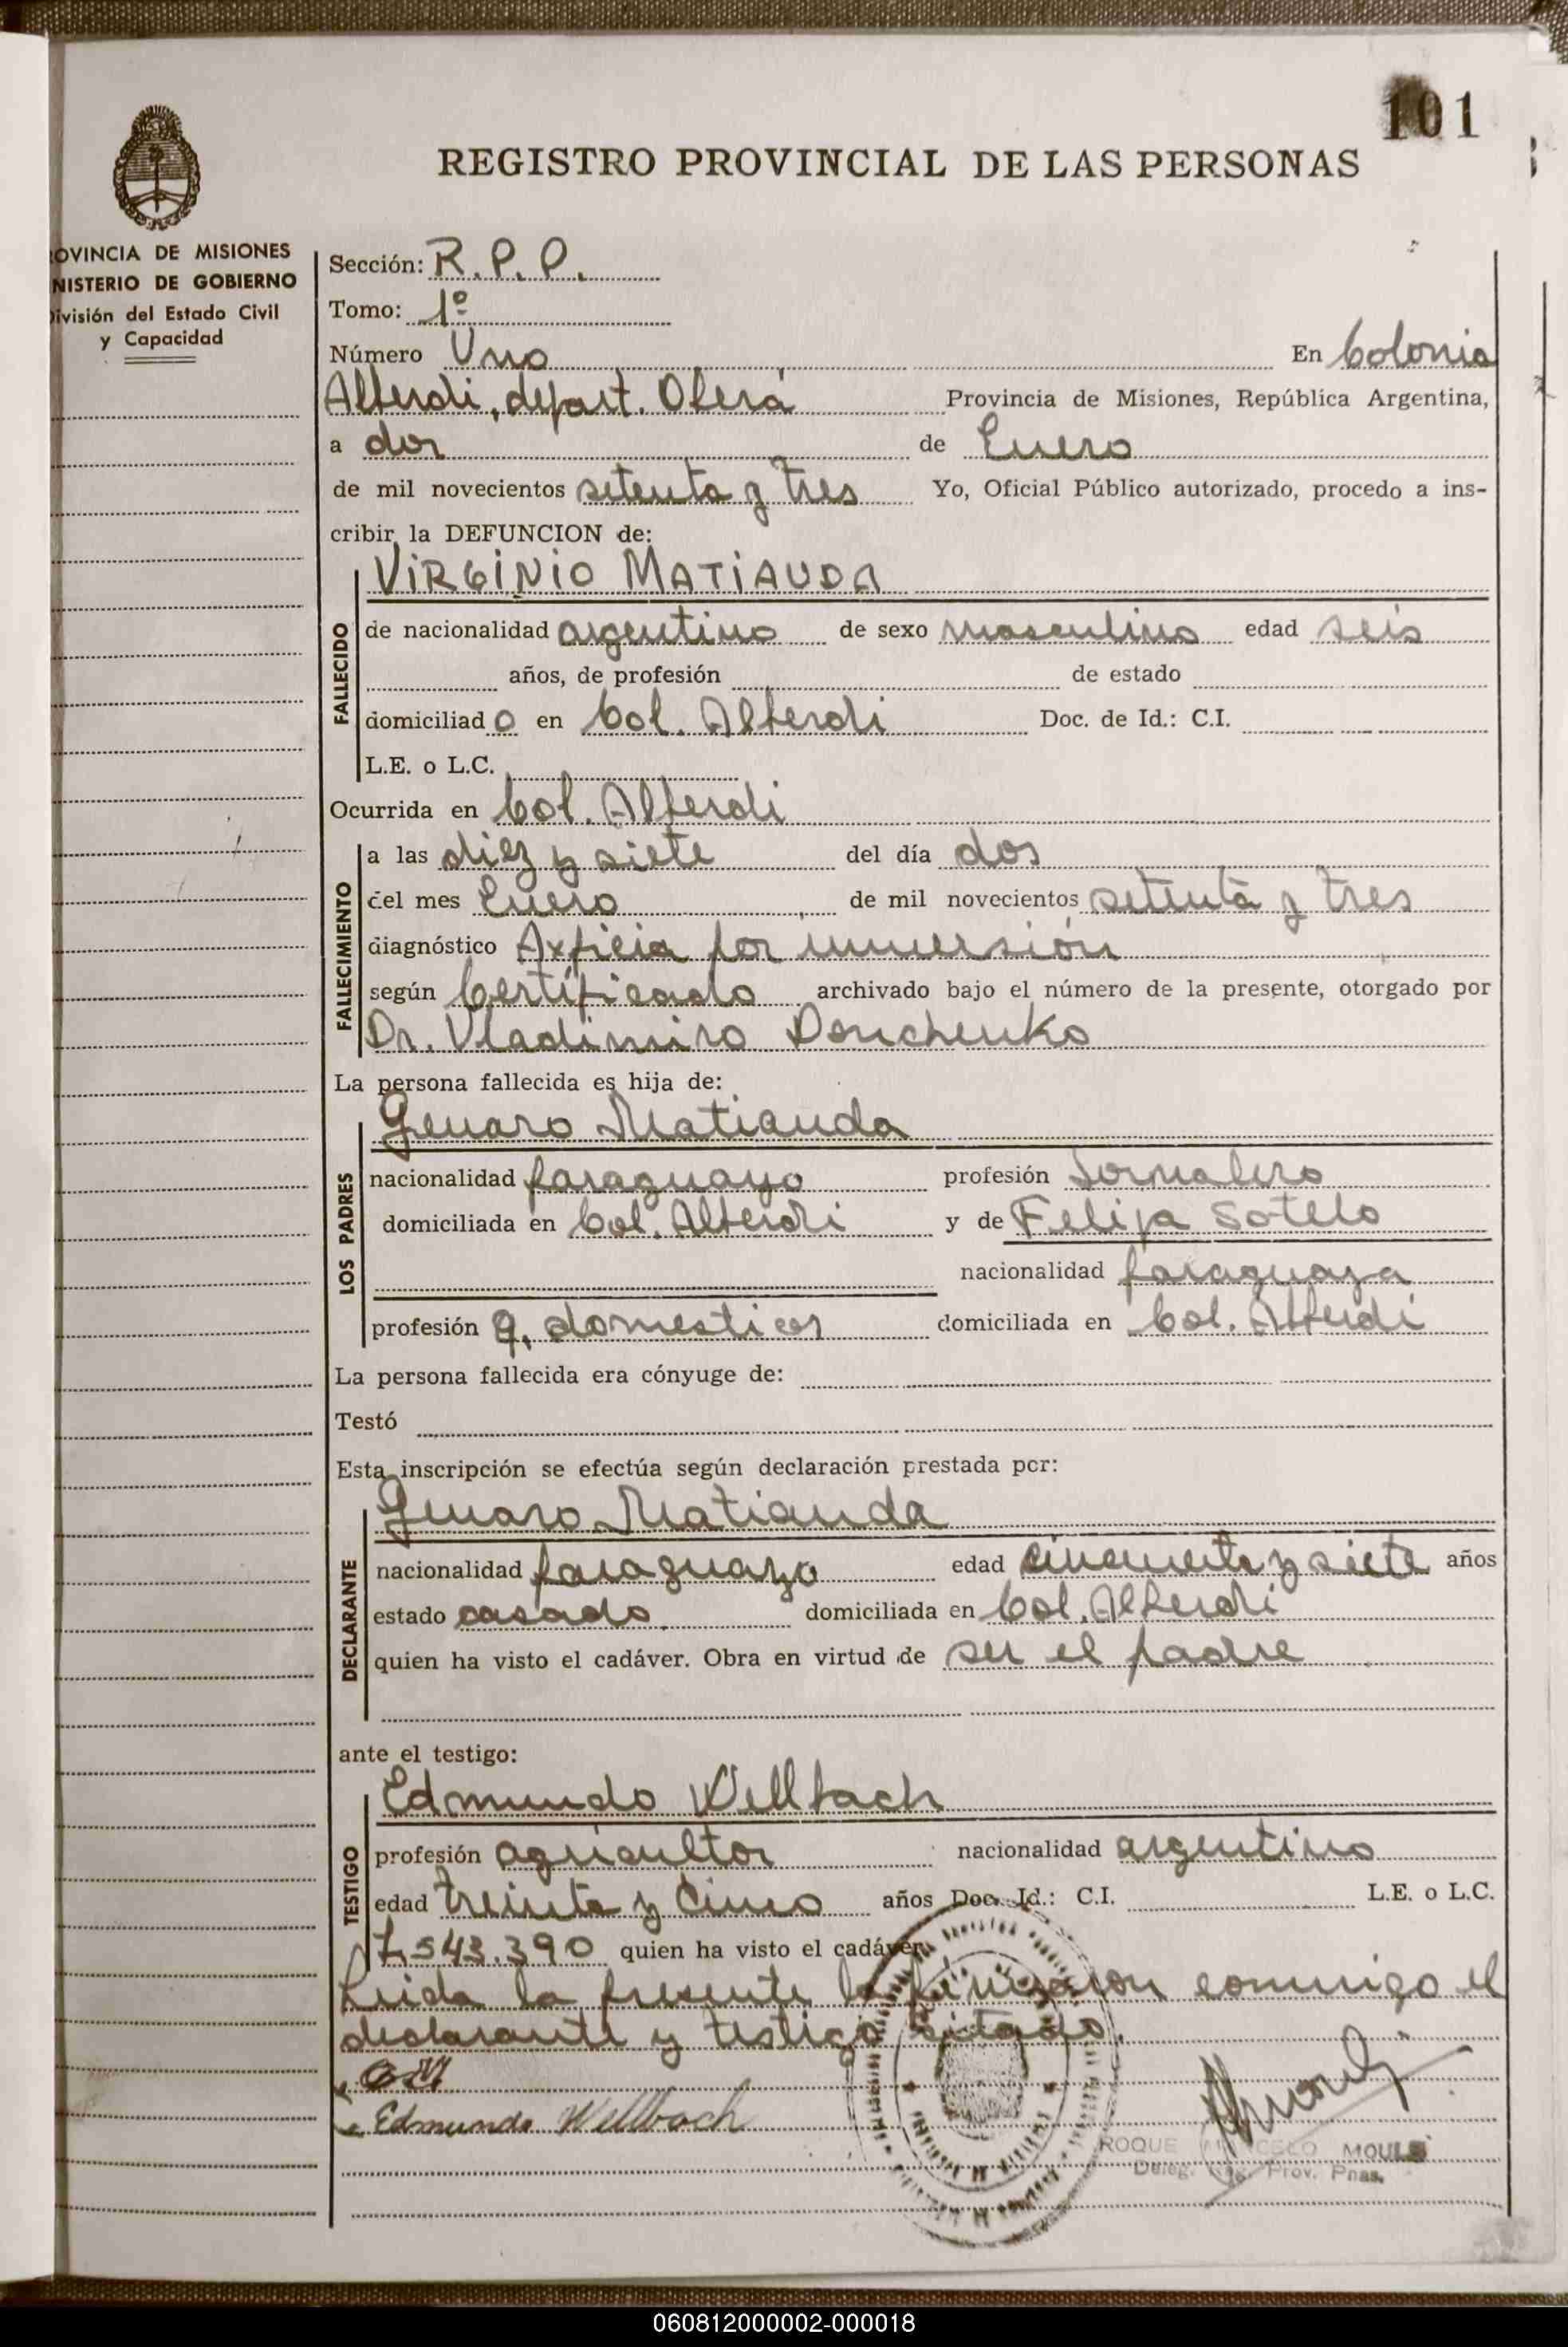 101
REGISTRO PROVINCIAL DE LAS PERSONAS
OVINCIA DE MISIONES
NISTERIO DE GOBIERNO
ivisión del Estado Civil
y Capacidad
Sección: R.P.P.
Tomo: 1º
Número Uno En Colonia
Alberdi, depart. Oberá Provincia de Misiones, República Argentina,
a dos de Enero
de mil novecientos setenta y tres Yo, Oficial Público autorizado, procedo a ins-
cribir la DEFUNCION de:
VIRGINIO MATIAUDA
FALLECIDO
de nacionalidad argentino de sexo masculino edad seis
años, de profesión de estado
domiciliado en Col. Alberdi Doc. de Id.: C.I.
L.E. o L.C.
Ocurrida en Col. Alberdi
FALLECIMIENTO
a las diez y siete del día dos
del mes Enero de mil novecientos setenta y tres
diagnóstico Axficia por inmersión
según Certificado archivado bajo el número de la presente, otorgado por
Dr. Vladimiro Donchenko
La persona fallecida es hija de:
LOS PADRES
Genaro Matiauda
nacionalidad paraguayo profesión Jornalero
domiciliada en Col. Alberdi y de Felipa Sotelo
nacionalidad paraguaya
profesión q. domesticos domiciliada en Col. Alberdi
La persona fallecida era cónyuge de:
Testó
Esta inscripción se efectúa según declaración prestada por:
DECLARANTE
Genaro Matiauda
nacionalidad paraguayo edad cincuenta y siete años
estado casado domiciliada en Col. Alberdi
quien ha visto el cadáver. Obra en virtud de ser el padre
ante el testigo:
TESTIGO
Edmundo Wellbach
profesión agricultor nacionalidad argentino
edad treinta y cinco años Doc. Id.: C.I. L.E. o L.C.
7.543.390 quien ha visto el cadáver.
Leida la presente la firmaron conmigo el
declarante y testigo citado.
Edmundo Wellbach
ROQUE MOULE
Deleg. Reg. Prov. Pnas.
060812000002-000018